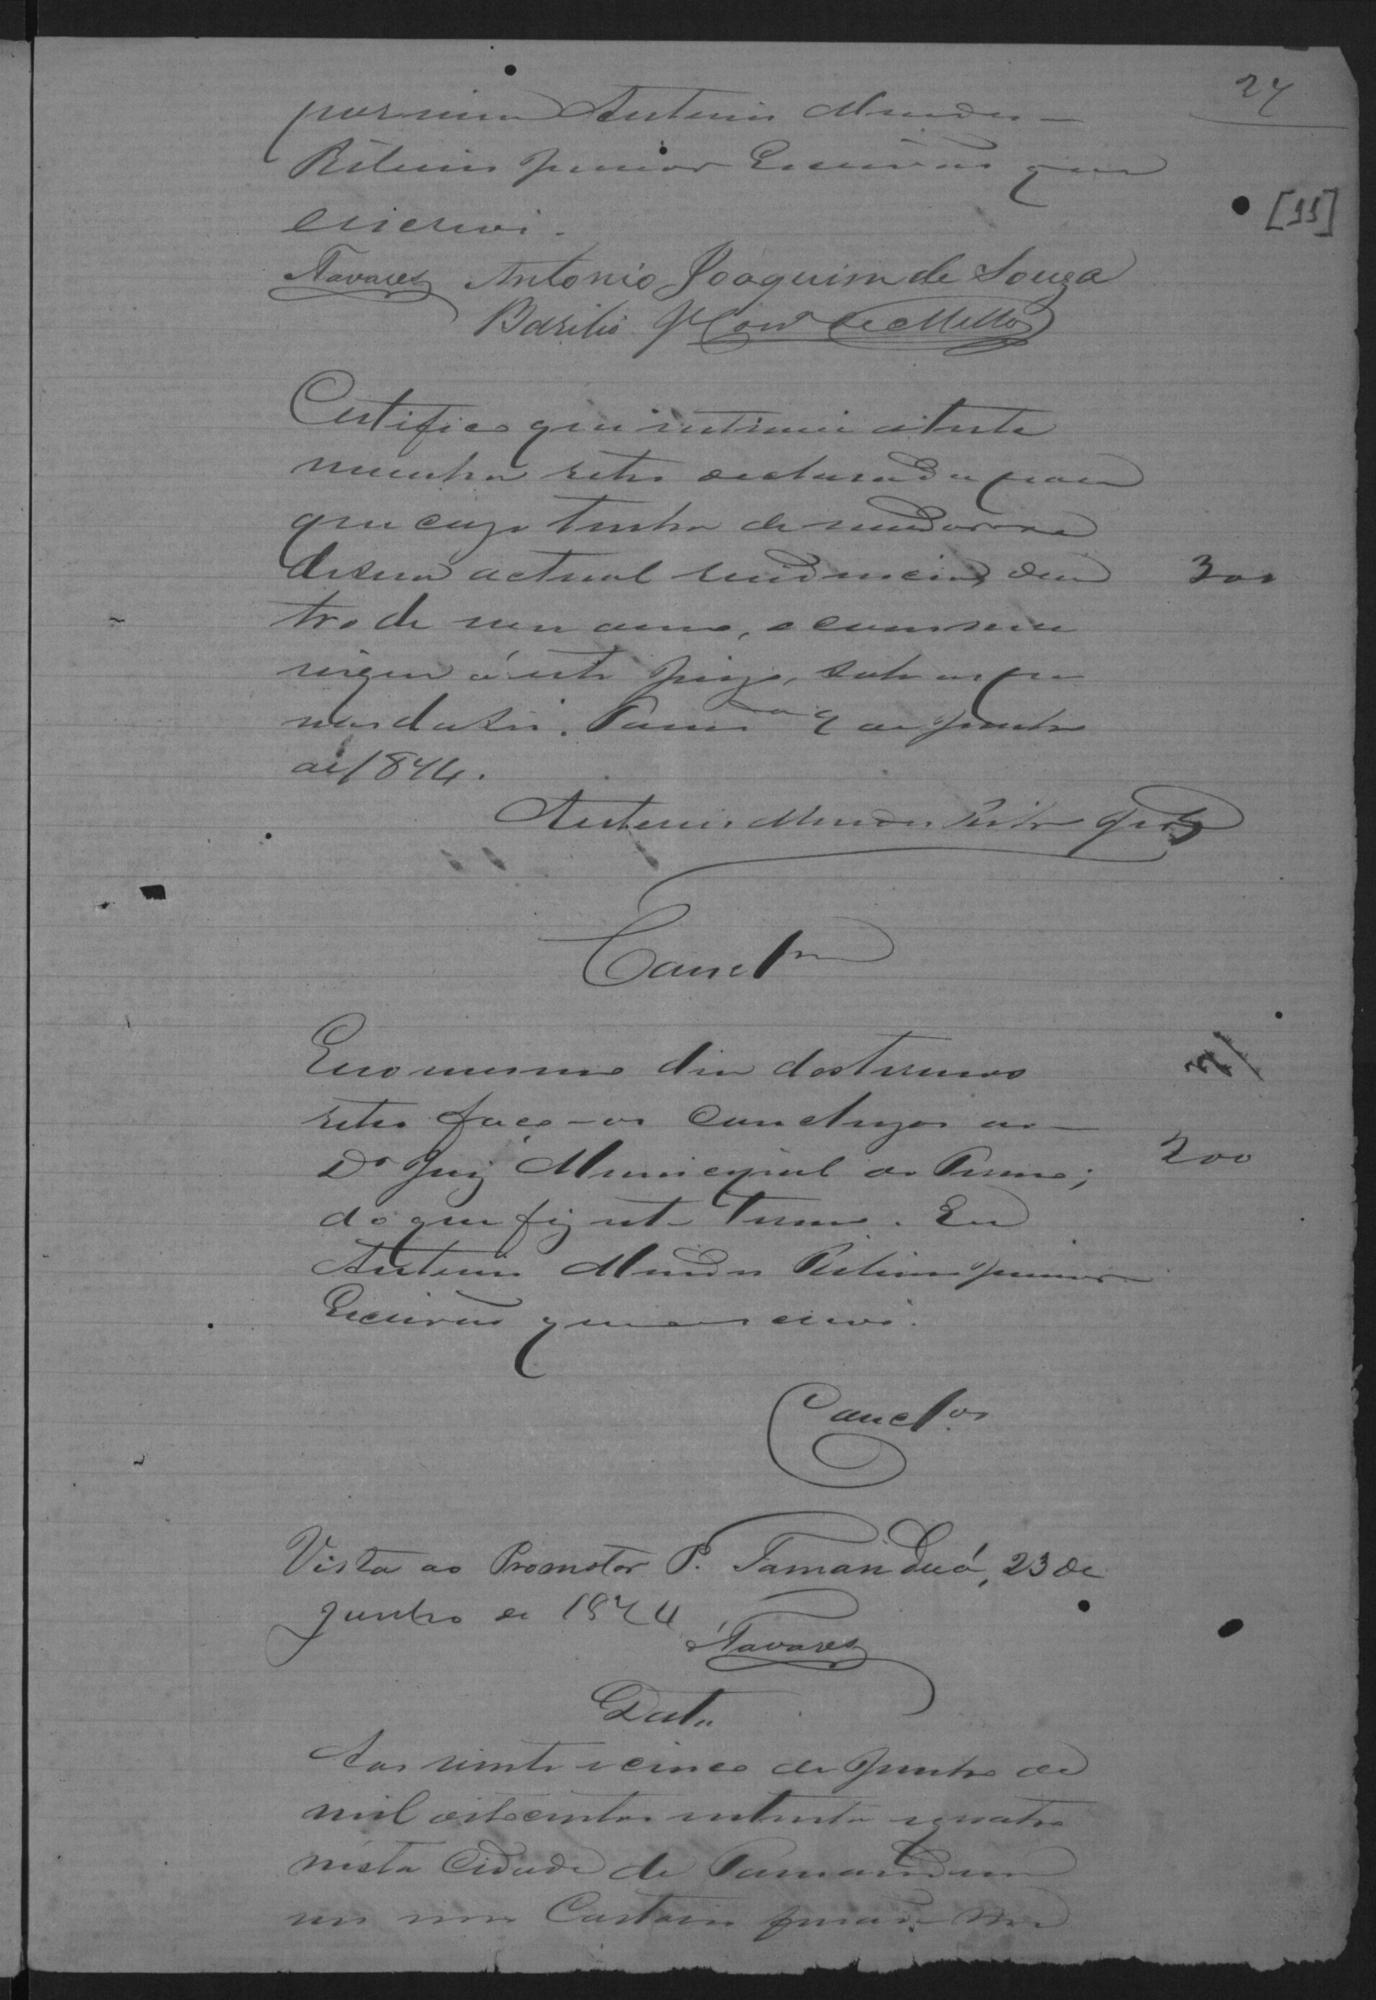 24
por mim Antonio Mendes
Ribeiro Junior Escrivão que
[11]
escrevi.
Tavares Antonio Joaquim de Souza
Basilio de Mello
Certifico que intimei a teste
munha retro declarada para
que caso tenha de mudar-se
de sua actual residencia, den
300
tro de um anno, o communi
á este Juizo, sob as pe
nas da Lei. Tam.ª de Junho
de 1874.
Antonio Mendes Rib.º Jun.or
Concl.m
E no mesmo dia dos termos
retro faço-os conclusos ao
Dr Juiz Municipal do Termo;
200
do que fiz este termo. Eu
Antonio Mendes Ribeiro Junior
Escrivão que escrevi.
Concl.os
Vista ao Promotor P. Tamanduá, 23 de
Junho de 1874
Tavares
Data
Aos vinte e cinco de Junho de
mil oitocentos setenta e quatro
nesta Cidade de Tamanduá
em meo Cartorio